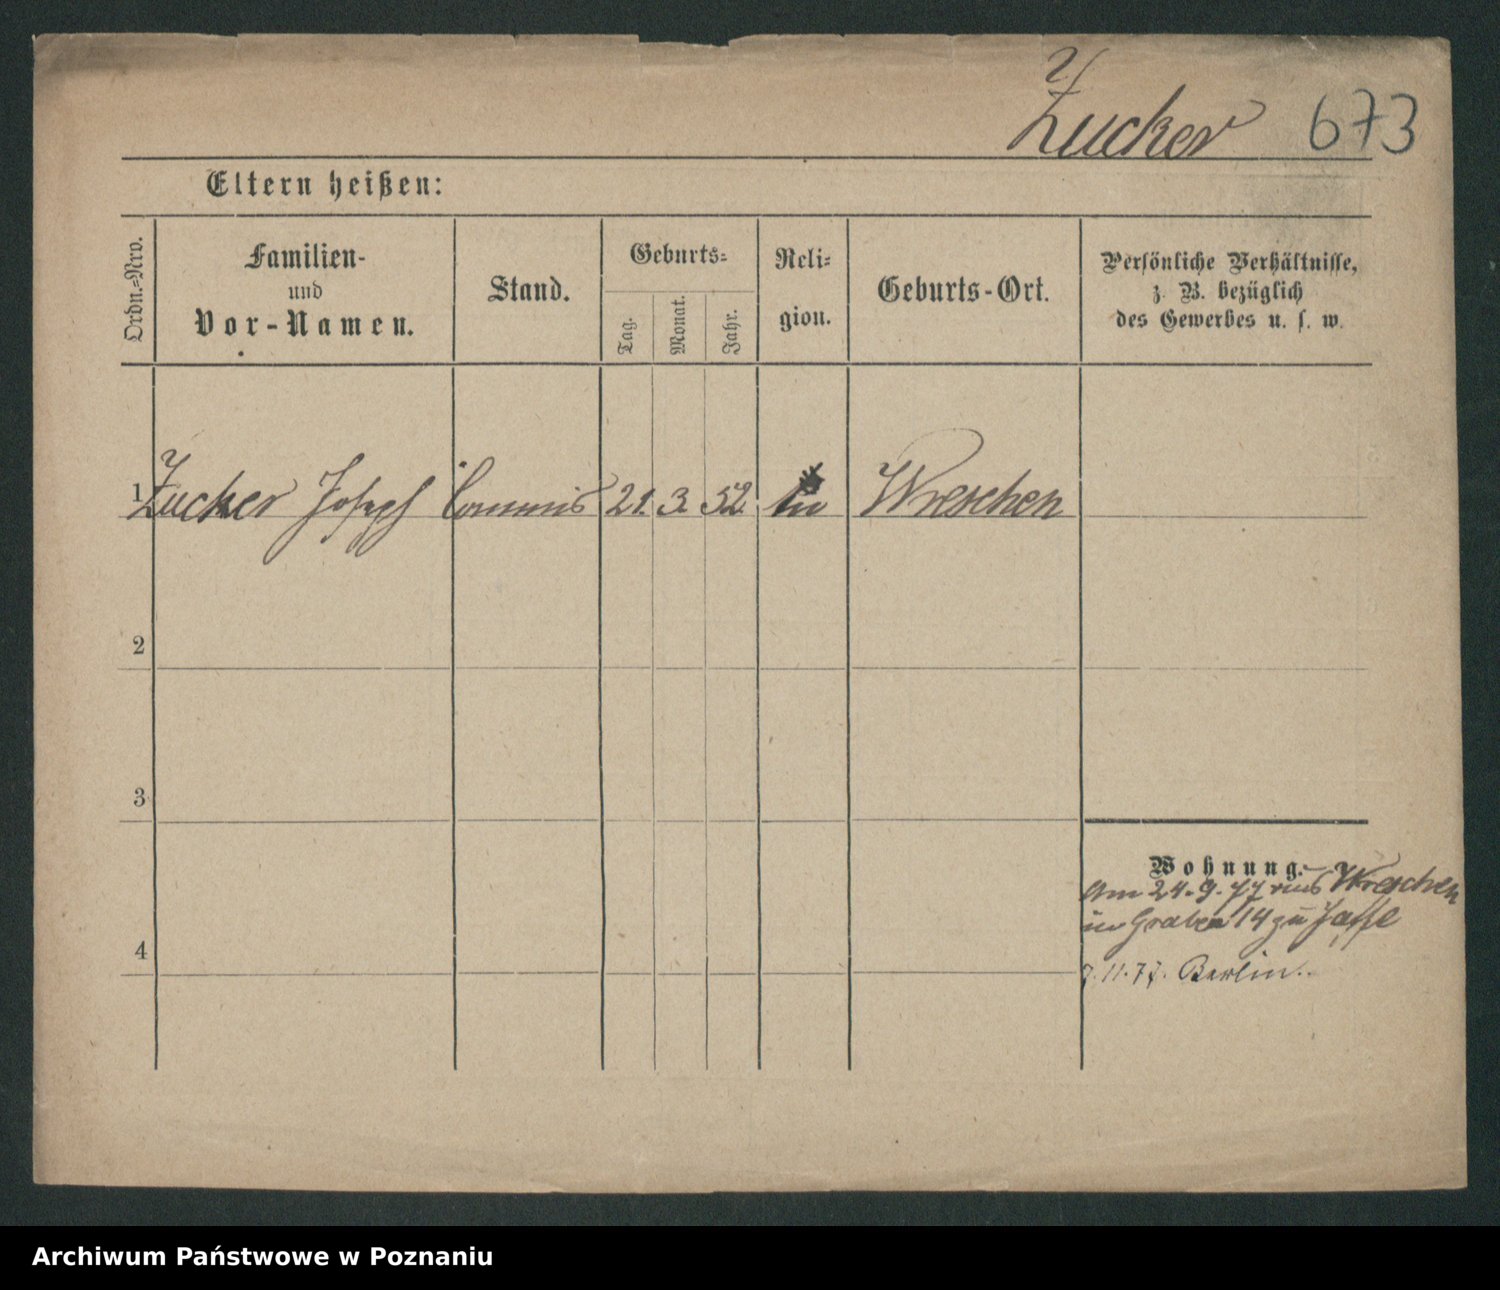 Zucker 673
Eltern heißen:
Ordn.-Nro.
Familien-
und
Vor-Namen.
Stand.
Geburts-
Tag.
Monat.
Jahr.
Reli-
gion.
Geburts-Ort.
Persönliche Verhältnisse,
z. B. bezüglich
des Gewerbes u. s. w.
1 Zucker Joseph Commis 21. 3. 52. Wreschen
2
3
Wohnung.
Am 24.9.77 aus Wreschen
in Graben 14 zu Jaffe
4
7.11.77. Berlin.
Archiwum Państwowe w Poznaniu